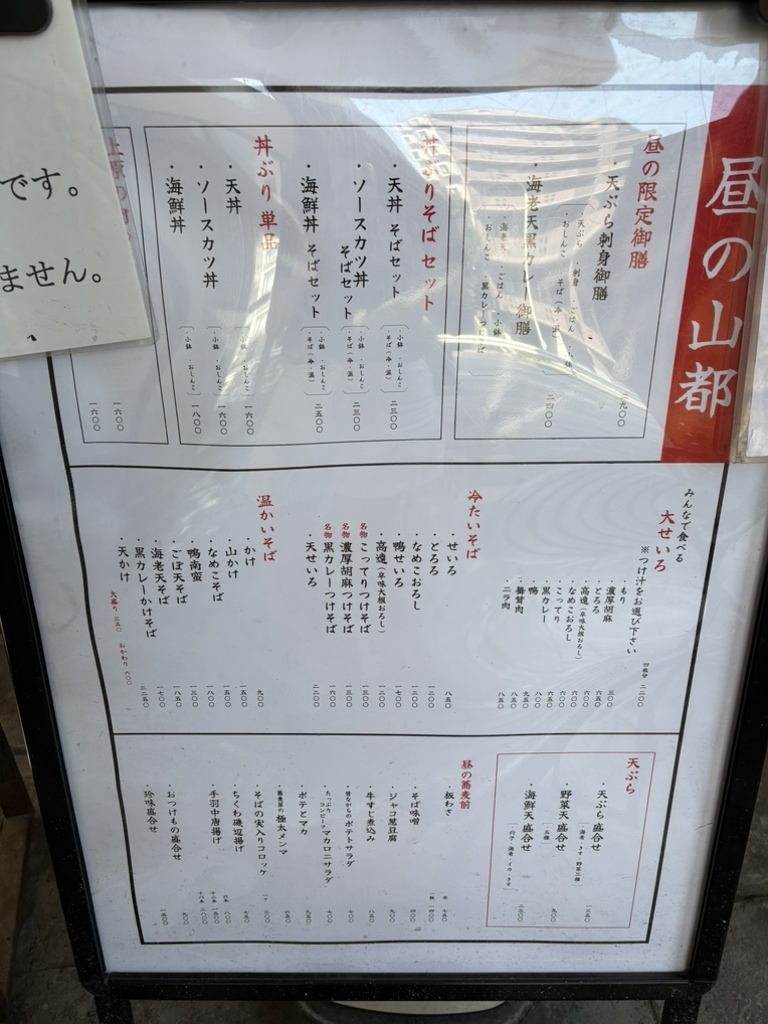 です。
ません。
昼の山都
昼の限定御膳
・天ぷら刺身御膳
・天ぷら ・刺身 ・ごはん ・小鉢
・おしんこ ・そば(冷・温)
・海老天黒カレー御膳
・海老天 ・ごはん ・小鉢
・おしんこ ・黒カレーつけそば
二四〇〇
丼ぶりそばセット
・天丼 そばセット
・小鉢 ・おしんこ
・そば(冷・温)
二三〇〇
・ソースカツ丼
そばセット
・小鉢 ・おしんこ
・そば(冷・温)
二三〇〇
・海鮮丼 そばセット
・小鉢 ・おしんこ
・そば(冷・温)
二五〇〇
丼ぶり単品
・天丼
・小鉢 ・おしんこ
一六〇〇
・ソースカツ丼
・小鉢 ・おしんこ
一六〇〇
・海鮮丼
・小鉢 ・おしんこ
一八〇〇
上原の
一六〇〇
一六〇〇
みんなで食べる
大せいろ
※つけ汁をお選び下さい
四枚分 二二〇〇
・もり
・濃厚胡麻 三〇〇
・とろろ 六五〇
・高遠(辛味大根おろし) 六〇〇
・なめこおろし 六〇〇
・こってり 六〇〇
・黒カレー 六五〇
・鴨 八〇〇
・舞茸肉 九五〇
・ニラ肉 八五〇
冷たいそば
・せいろ 八五〇
・とろろ 一二〇〇
・なめこおろし 一三〇〇
・鴨せいろ 一七〇〇
・高遠(辛味大根おろし) 一二〇〇
名物 こってりつけそば 一三〇〇
名物 濃厚胡麻つけそば 一三〇〇
名物 黒カレーつけそば 一六〇〇
・天せいろ 二二〇〇
温かいそば
・かけ 九〇〇
・山かけ 一五〇〇
・なめこそば 一五〇〇
・鴨南蛮 一八〇〇
・ごぼ天そば 一五〇〇
・海老天そば 一八五〇
・黒カレーかけそば 一七〇〇
・天かけ 二二五〇
大盛り 三五〇 おかわり 六〇〇
天ぷら
・天ぷら盛合せ
(・海老・きす・野菜三種)
一三五〇
・野菜天盛合せ
(・五種)
九〇〇
・海鮮天盛合せ
(・穴子・海老・イカ・きす)
二三〇〇
昼の蕎麦前
・板わさ
・そば味噌 四〇〇
・ジャコ葱豆腐 九〇〇
・牛すじ煮込み 八五〇
・昔ながらのポテトサラダ 七〇〇
・たっぷりコンビーフマカロニサラダ 七〇〇
・ポテとマカ 九五〇
・蕎麦屋の極太メンマ 六五〇
・そばの実入りコロッケ
・ちくわ磯辺揚げ 七五〇
・手羽中唐揚げ
・おつけもの盛合せ 九〇〇
・珍味盛合せ 一五〇〇